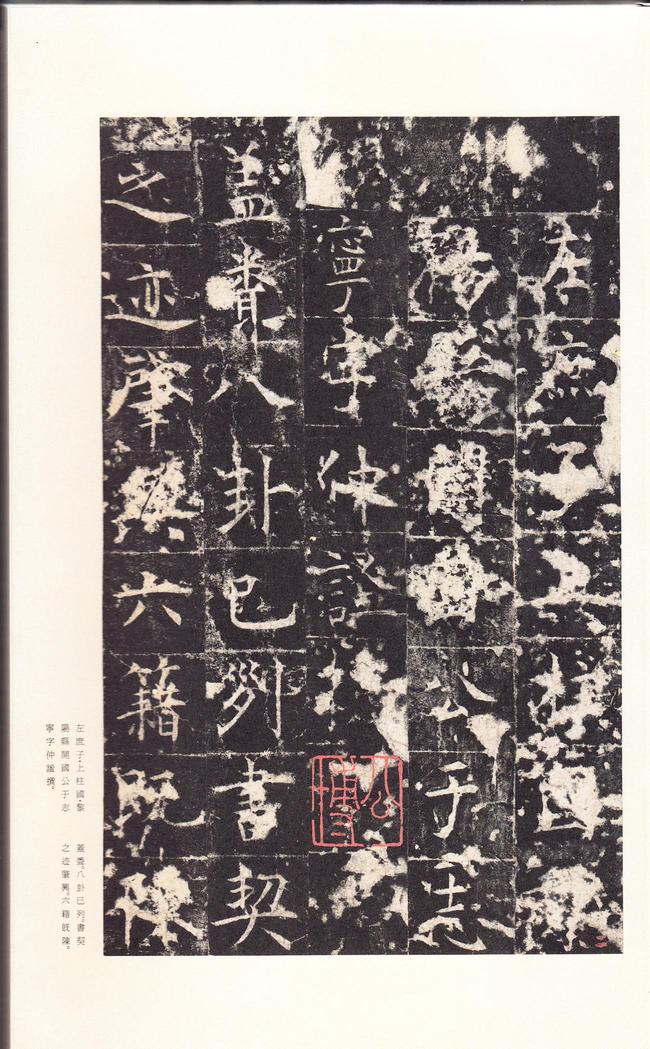 左庶子上柱國黎
陽縣開國公于志
寧字仲謐撰
盖八卦已列書契
之迹肇興六籍既陳
左庶子·上柱國·黎
陽縣開國公于志
寧字仲謐撰。
蓋八卦已列。書契
之迹肇興。六籍既陳。